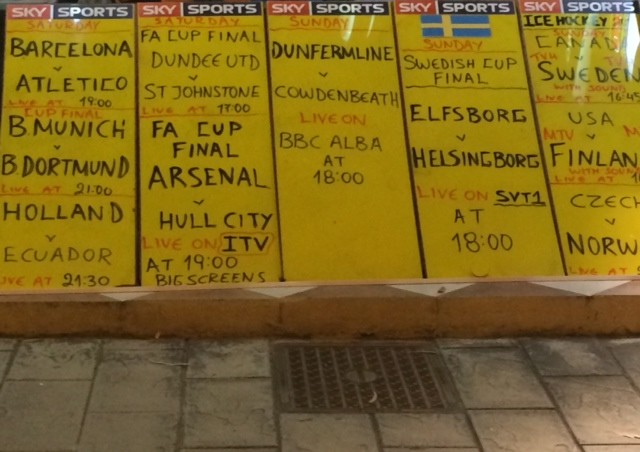 SKY SPORTS
SATURDAY
BARCELONA
V
ATLETICO
LIVE AT 19:00
CUP FINAL
B.MUNICH
V
B.DORTMUND
LIVE AT 21:00
HOLLAND
V
ECUADOR
LIVE AT 21:30
SKY SPORTS
SATURDAY
FA CUP FINAL
DUNDEE UTD
V
ST JOHNSTONE
LIVE AT 17:00
FA CUP
FINAL
ARSENAL
V
HULL CITY
LIVE ON ITV
AT 19:00
BIG SCREENS
SKY SPORTS
SUNDAY
DUNFERMLINE
V
COWDENBEATH
LIVE ON
BBC ALBA
AT
18:00
SKY SPORTS
SUNDAY
SWEDISH CUP
FINAL
ELFSBORG
V
HELSINGBORG
LIVE ON SVT1
AT
18:00
SKY SPORTS
ICE HOCKEY
SUNDAY
CANAD
V
SWEDEN
WITH SOUND
LIVE AT 16:45
USA
MTV V
FINLAN
WITH SOUN
LIVE AT
CZECH
V
NORW
LIVE AT